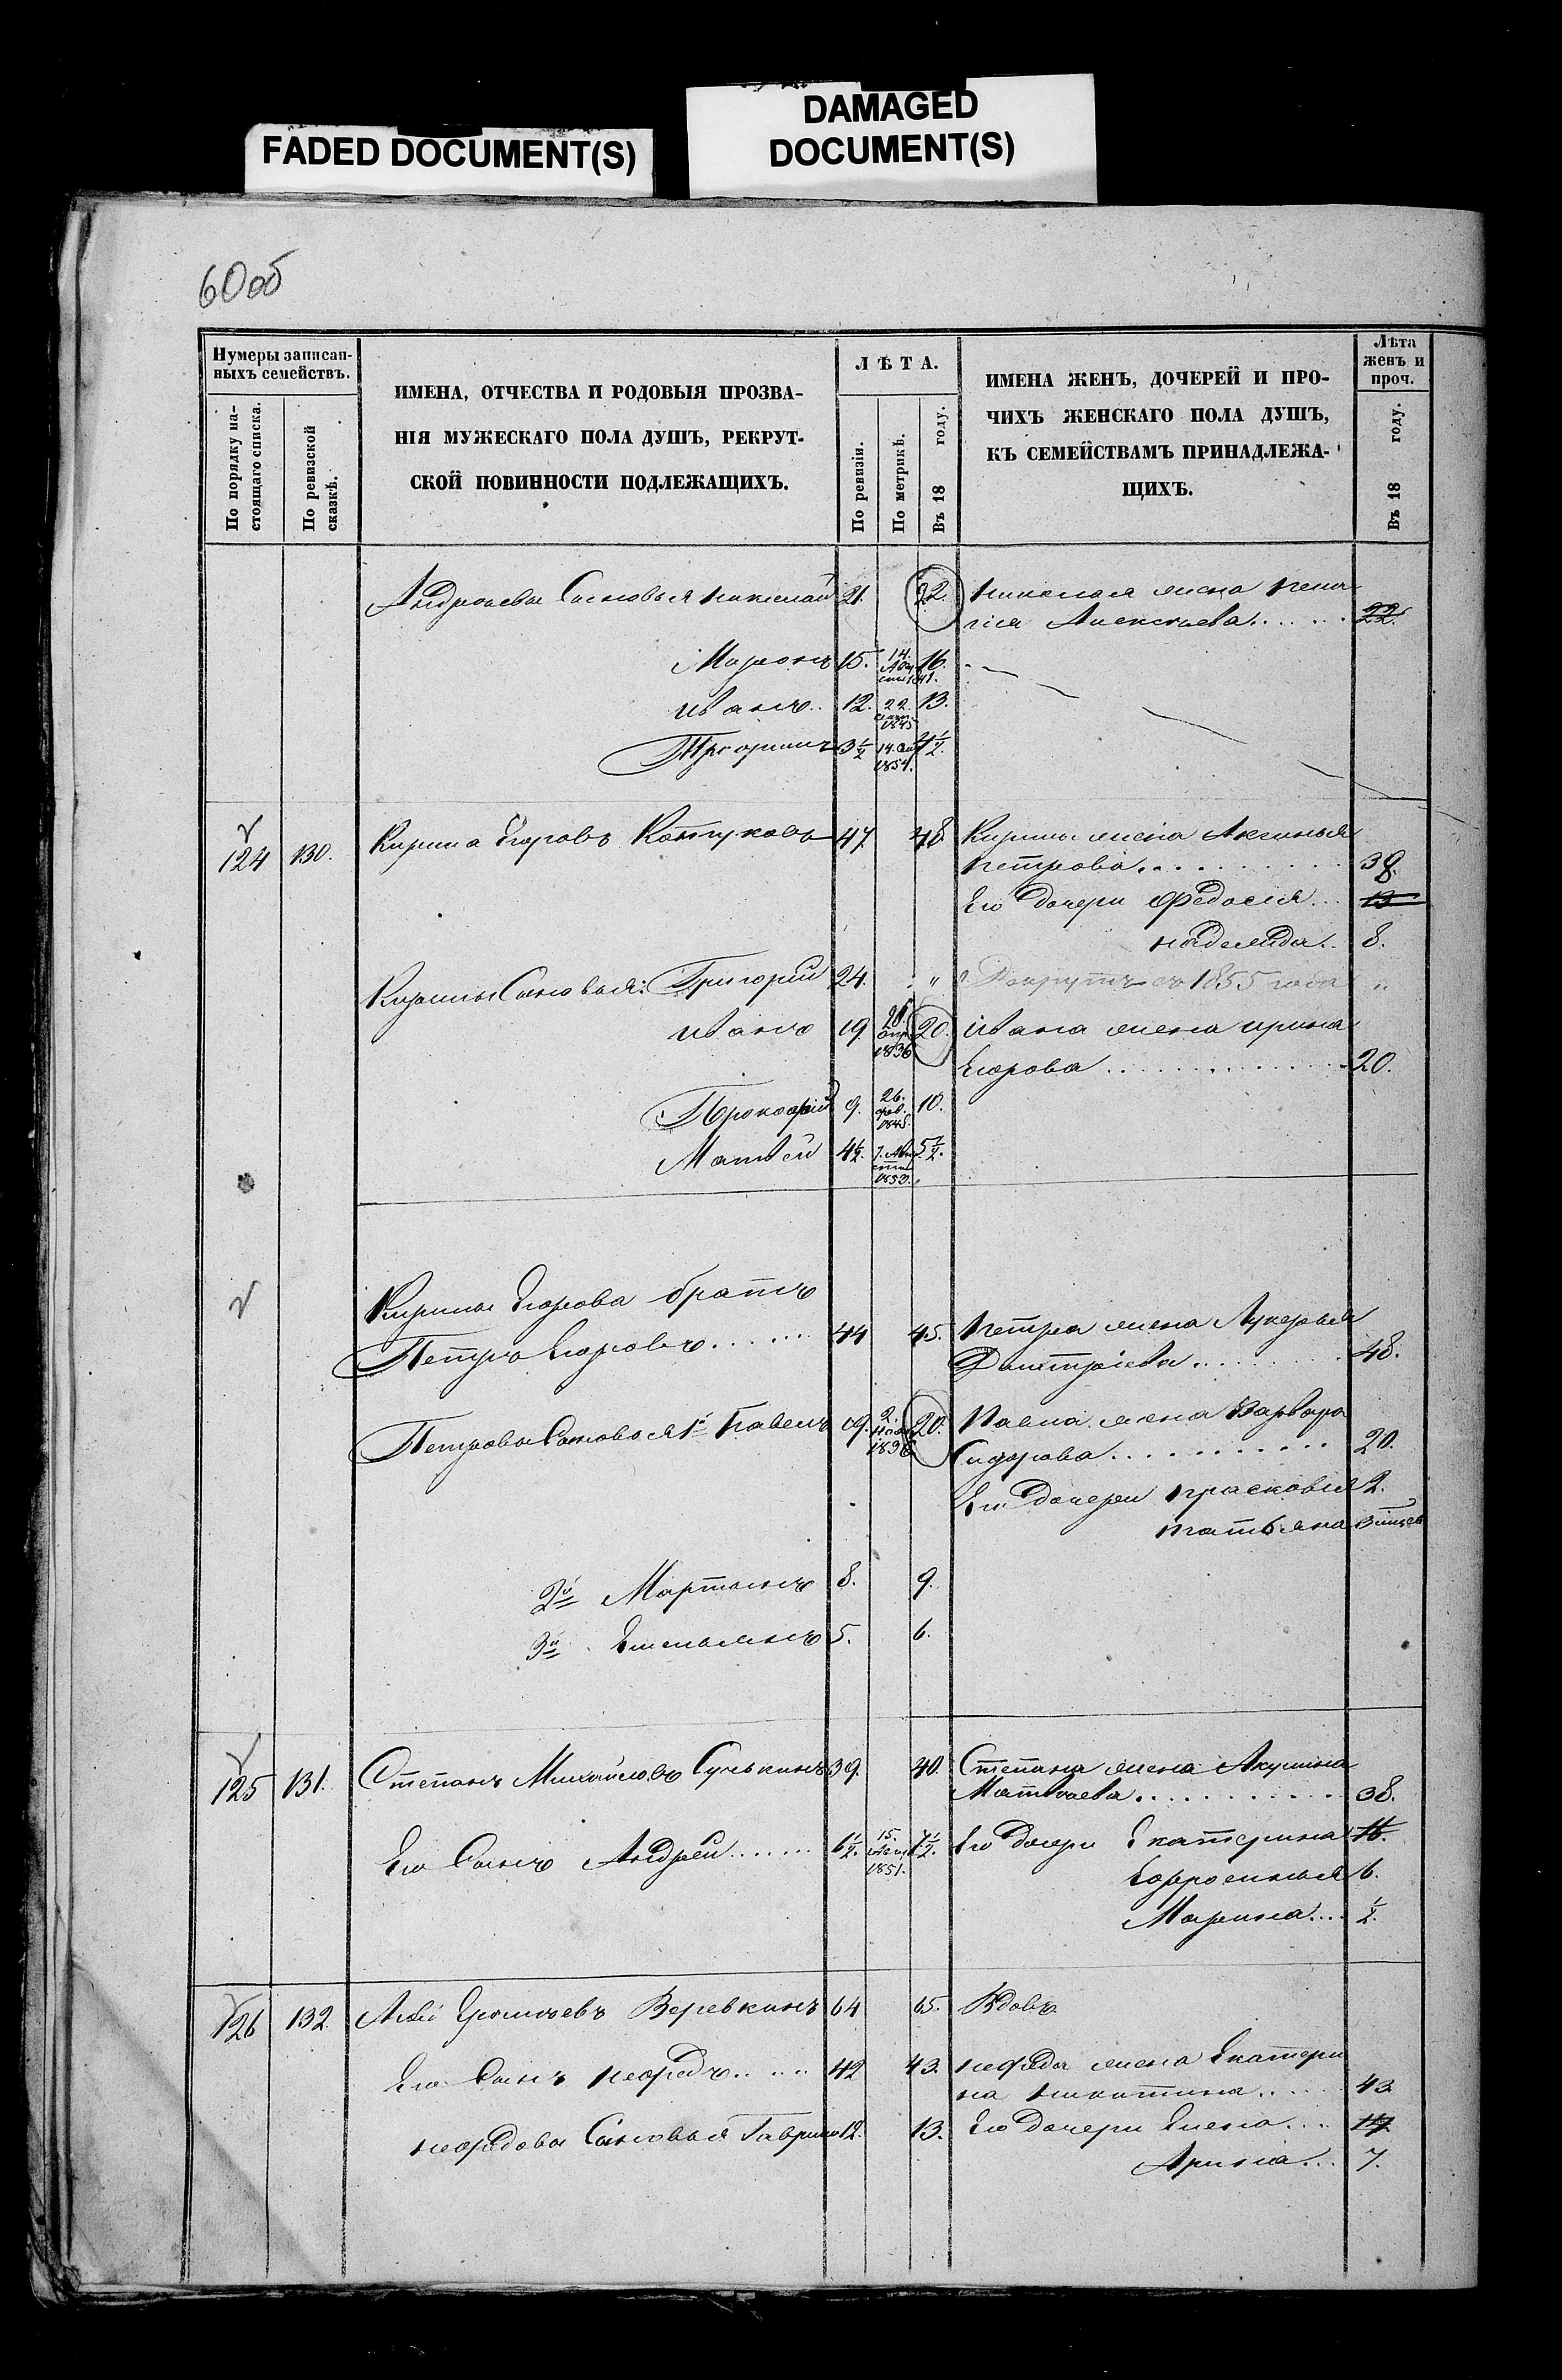 FADED DOCUMENT(S)
DAMAGED
DOCUMENT(S)
60об
Нумеры записан-
ныхъ семействъ.
По порядку на-
стоящаго списка.
По ревизской
сказкѣ.
ИМЕНА, ОТЧЕСТВА И РОДОВЫЯ ПРОЗВА-
НІЯ МУЖЕСКАГО ПОЛА ДУШЪ, РЕКРУТ-
СКОЙ ПОВИННОСТИ ПОДЛЕЖАЩИХЪ.
ЛѢТА.
По ревизіи.
По метрикѣ.
Въ 18 году.
ИМЕНА ЖЕНЪ, ДОЧЕРЕЙ И ПРО-
ЧИХЪ ЖЕНСКАГО ПОЛА ДУШЪ,
КЪ СЕМЕЙСТВАМЪ ПРИНАДЛЕЖА-
ЩИХЪ.
Лѣта
женъ и
проч.
Въ 18 году.
Сыновья николай 21. 22. николая жена
Алексѣева 22.
Миронъ 15. 14. 16.
иванъ 12. 22. 13.
1845
3½ 14. 4½.
1854.
124 130. Кирила Егоровъ 47 48 Кирилы жена Аксинья
петрова 38.
Его дочери Федосья 13
надежда 8.
Кирилы Сыновья: Григорий 24. " Рекрутъ съ 1855 года "
иванъ 19 28. апр. 1836 20. ивана жена ирина
Егорова 20.
Прокофій 9. 26. фев. 10.
Матвей 4½. 5½.
1850.
Кирилы Егорова братъ
Петръ Егоровъ 44 45. петра жена Лукерья
Дмитріева 48.
Петровы Сыновья 1й Павелъ 19. 2. 1836 20. Павла жена Варвара
Сидорова 20.
Его дочери прасковья 2.
татьяна
2й Мартынъ 8. 9.
3й Емельянъ 5. 6.
125 131. Степанъ Михайловъ 39. 40. Степана жена Акулина
Матвѣева 38.
Его Сынъ Андрей 6½. 15. 1851. 7½. Его дочери Екатерина 16.
Ефросинья 6.
Марина ½.
126 132 Веревкинъ 64 65. Вдовъ
Его Сынъ нефедъ 42 43. нефеда жена Екатери
на никитина 43
нефедовы Сыновья Гаврило 12. 13. Его дочери Елена
Арина 7.